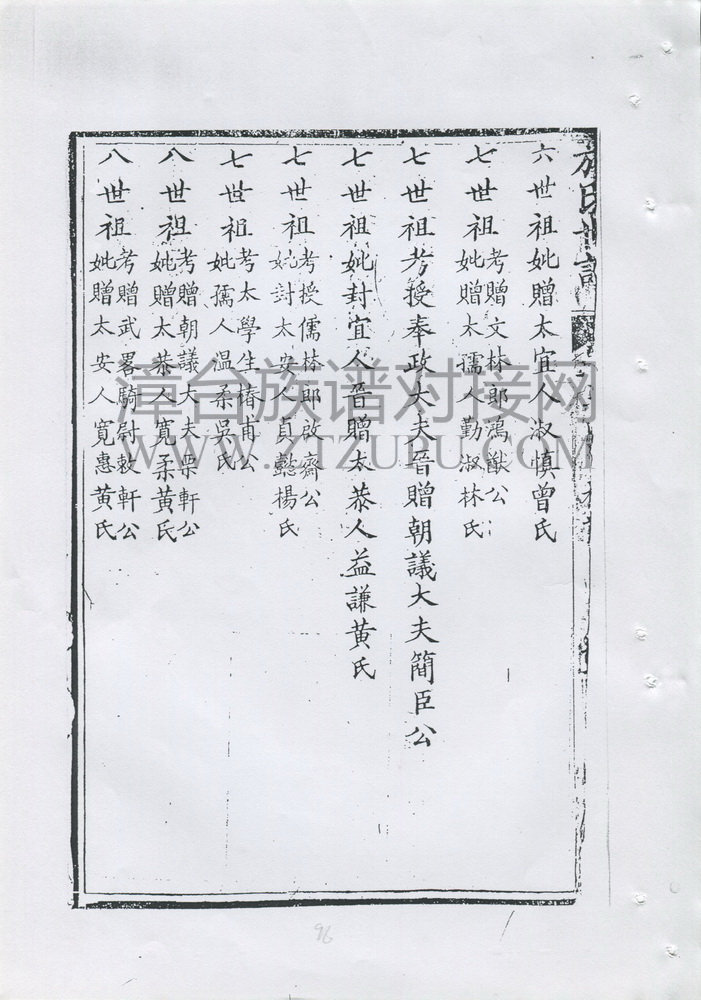 六世祖妣贈太宜人淑慎曾氏
七世祖考贈文林郎鴻猷公
妣贈太孺人勤淑林氏
七世祖考授奉政大夫晉贈朝議大夫簡臣公
七世祖妣封宜人晉贈太恭人益謙黃氏
七世祖考授儒林郎啟齋公
妣封太安人貞懿楊氏
七世祖考太學生椿甫公
妣孺人温柔吳氏
八世祖考贈朝議大夫栗軒公
妣贈太恭人寬柔黃氏
八世祖考贈武畧騎尉敕軒公
妣贈太安人寬惠黃氏
漳台族谱对接网
WWW.ZTZUPU.COM
96